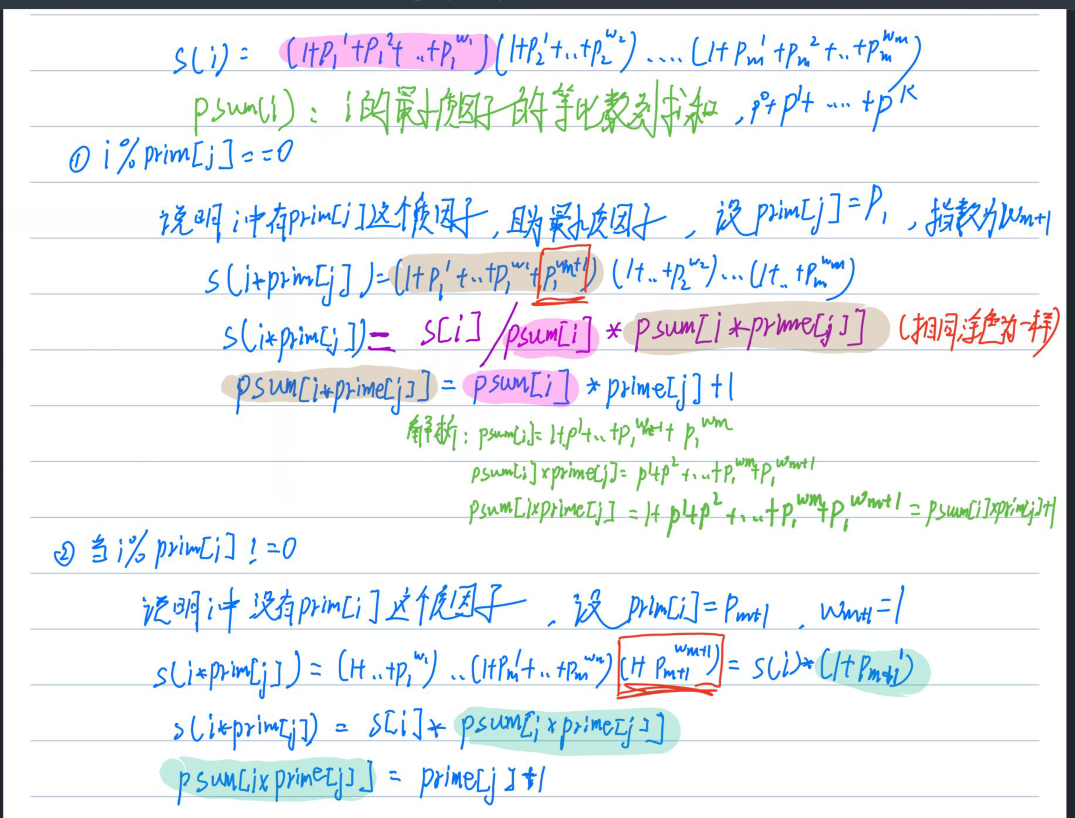 s(i) = (1+p₁¹+p₁²+..+p₁^w₁)(1+p₂¹+..+p₂^w₂)....(1+pₘ¹+pₘ²+..+pₘ^wₘ)
psum(i) : i的最小质因子的等比数列求和, p⁰+p¹+....+p^k
① i%prim[j]==0
说明i中有prim[j]这个质因子,且为最小质因子,设prim[j]=P₁,指数为wm+1
s(i*prim[j])=(1+p₁¹+..+p₁^w₁+p₁^wm+1)(1+..+p₂^w₂)...(1+..+pₘ^wm)
s(i*prim[j])= s[i]/psum[i] * psum[i*prime[j]] (相同涂色为一样)
psum[i*prime[j]] = psum[i] * prime[j]+1
解析: psum[i]=1+p¹+..+p₁^wm-1+p₁^wm
psum[i]×prime[j]= p¹+p²+...+p₁^wm+p₁^wm+1
psum[i×prime[j] = 1+p¹+p²+...+p₁^wm+p₁^wm+1 = psum[i]×prim[j]+1
② 当i%prim[j] !=0
说明i中没有prim[i]这个质因子,设 prim[i]=Pm+1, wm+1=1
s(i*prim[j]) = (1+..+p₁^w₁)..(1+pm¹+..+pm^wm)(1+Pm+1^wm+1)= s(i)*(1+Pm+1¹)
s(i*prim[j]) = s[i]* psum[i×prime[j]]
psum[i×prime[j]] = prime[j]+1